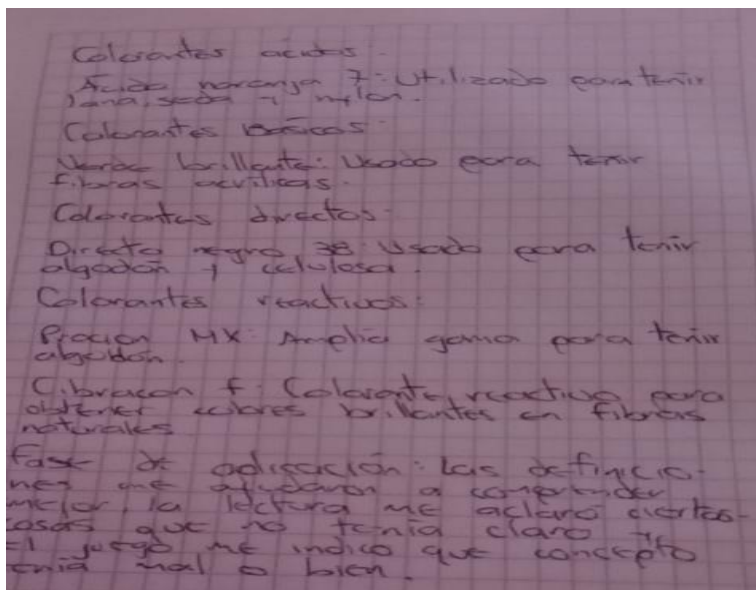 Colorantes acidos
Ácido naranja 7: Utilizado para tenir
lana, seda y nylon.
Colorantes Basicos:
Verde brillante: Usado para tenir
fibras acrilicas.
Colorantes directos:
Directo negro 38: Usado para tenir
algodón y celulosa.
Colorantes reactivos:
Procion MX: Amplia gama para tenir
algodón.
Cibracon f: Colorante reactivo para
obtener colores brillantes en fibras
naturales
Fase de aplicación: Las definicio-
nes me ayudaron a comprender
mejor, la lectura me aclaro ciertas
cosas que no tenia claro y
El juego me indico que concepto
tenia mal o bien.